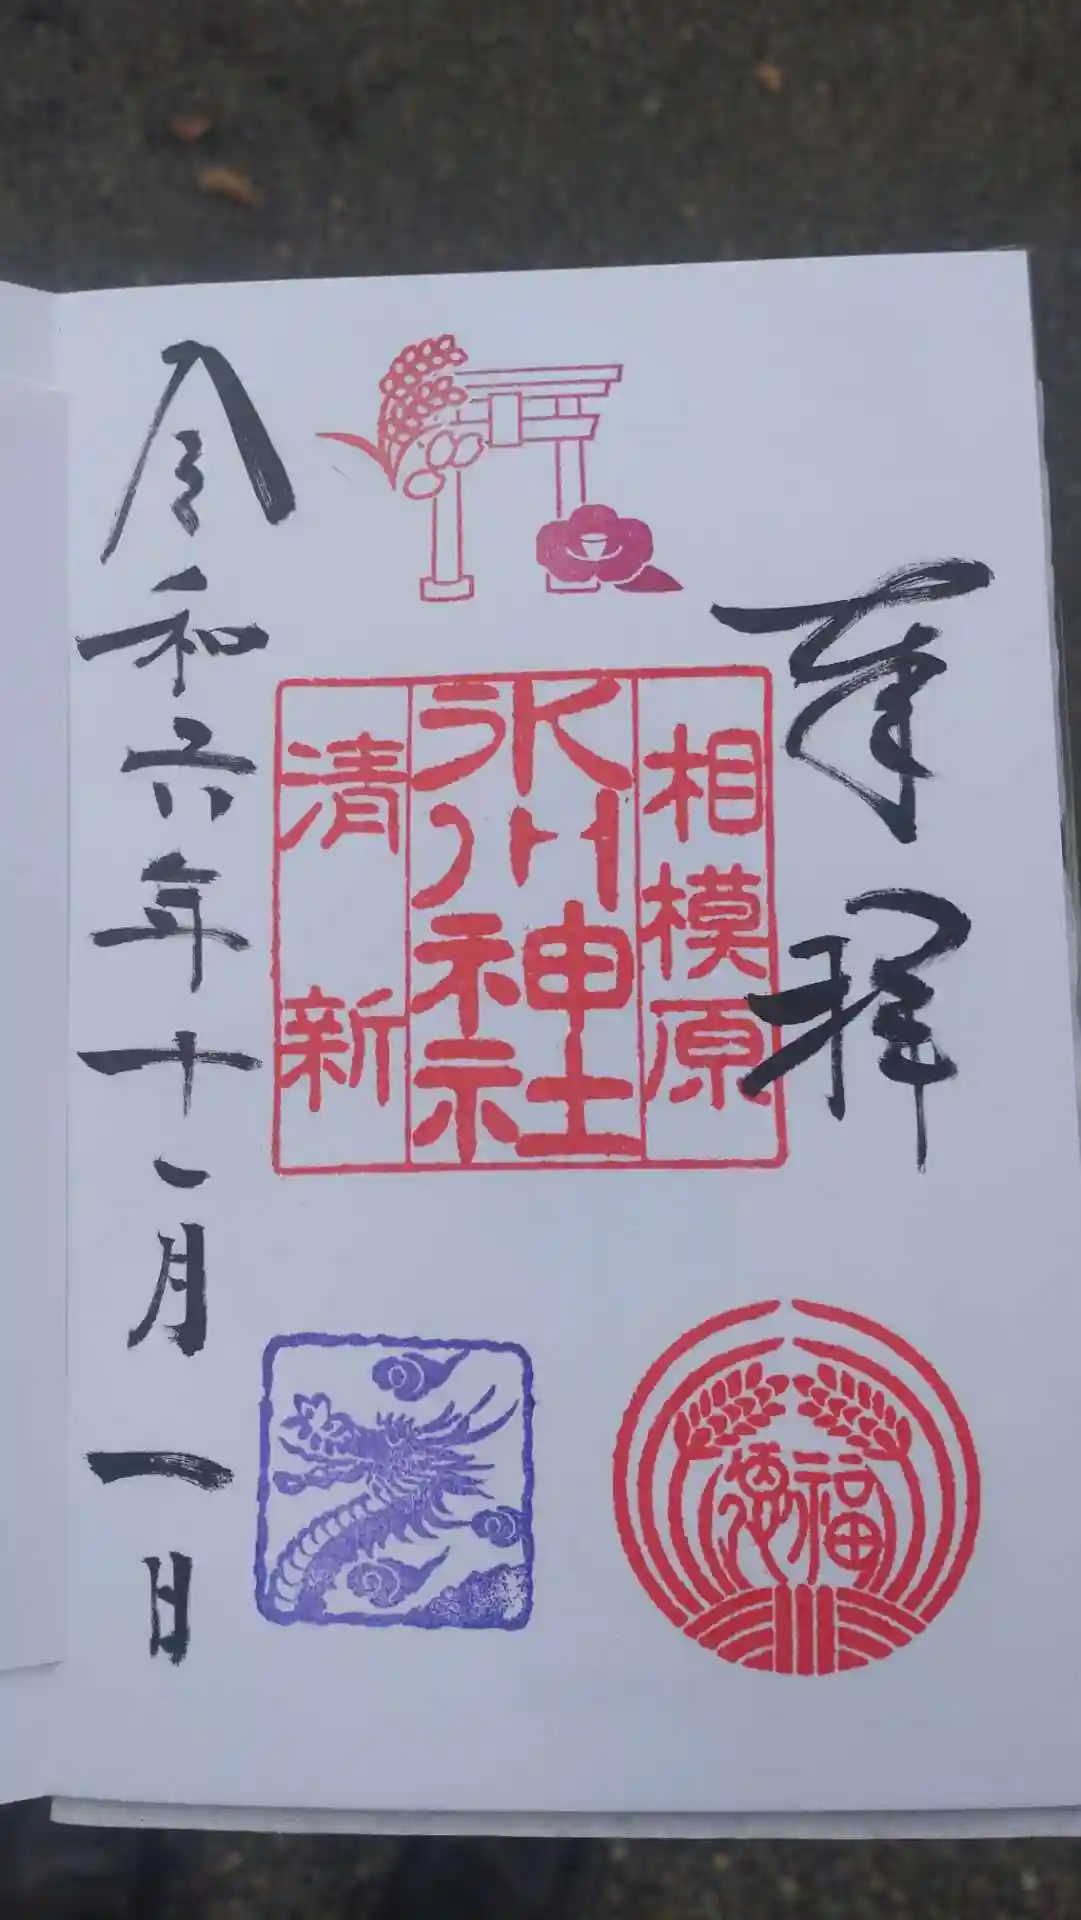 奉拝
相模原
氷川神社
清新
福徳
令和六年十一月一日